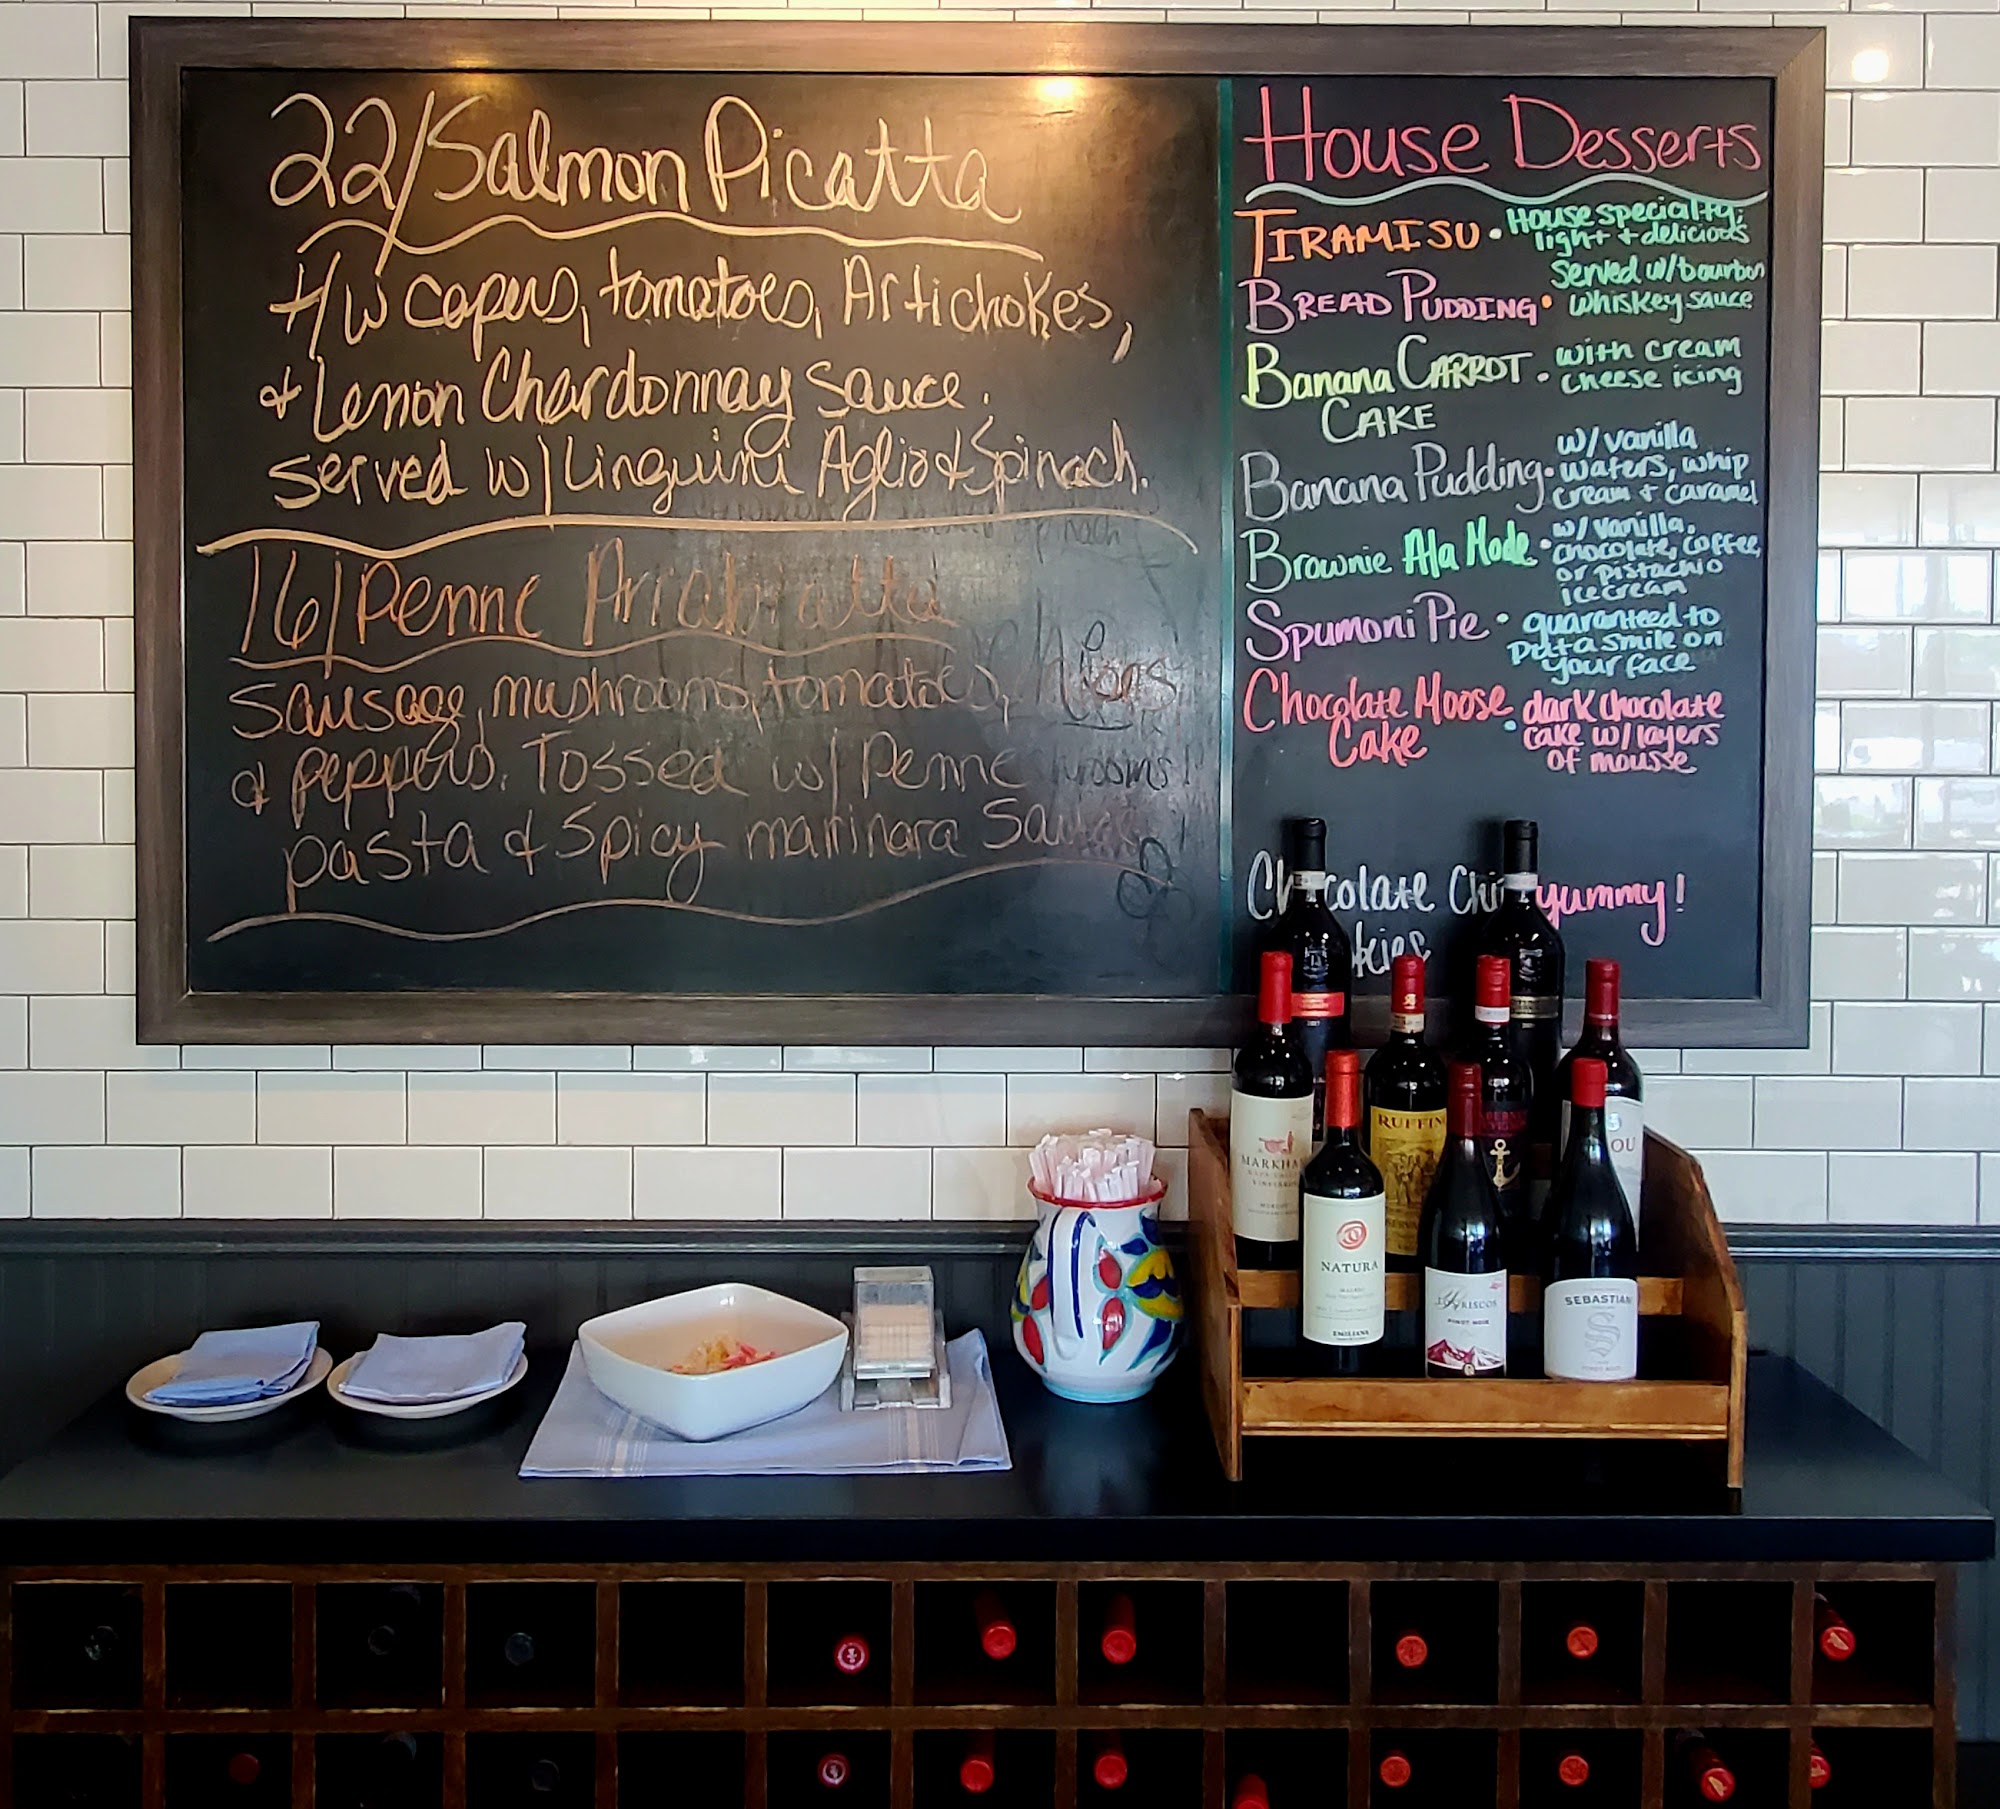 22/Salmon Picatta
t/w capers, tomatoes, Artichokes,
& Lemon Chardonnay sauce.
served w/Linguini Aglio & Spinach.
16/Penne Arriabiatta
sausage, mushrooms, tomatoes,
& peppers. Tossed w/ Penne
pasta & Spicy marinara Sauce
House Desserts
TIRAMISU • House specialty;
light + delicious
BREAD PUDDING • Served w/bourbon
whiskey sauce
Banana CARROT CAKE • with cream
cheese icing
Banana Pudding • w/ vanilla
wafers, whip
cream + caramel
Brownie Ala Mode • w/ vanilla,
chocolate, coffee,
or pistachio
ice cream
Spumoni Pie • guaranteed to
put a smile on
your face
Chocolate Moose
Cake • dark chocolate
cake w/ layers
of mousse
Chocolate Chi yummy!
kies
MARKHA
NAPA VALLEY
VINEYARDS
MERLOT
RUFFIN
NATURA
MALBEC
EMILIANA
PINOT NOIR
SEBASTIANI
S
PINOT NOIR
OU